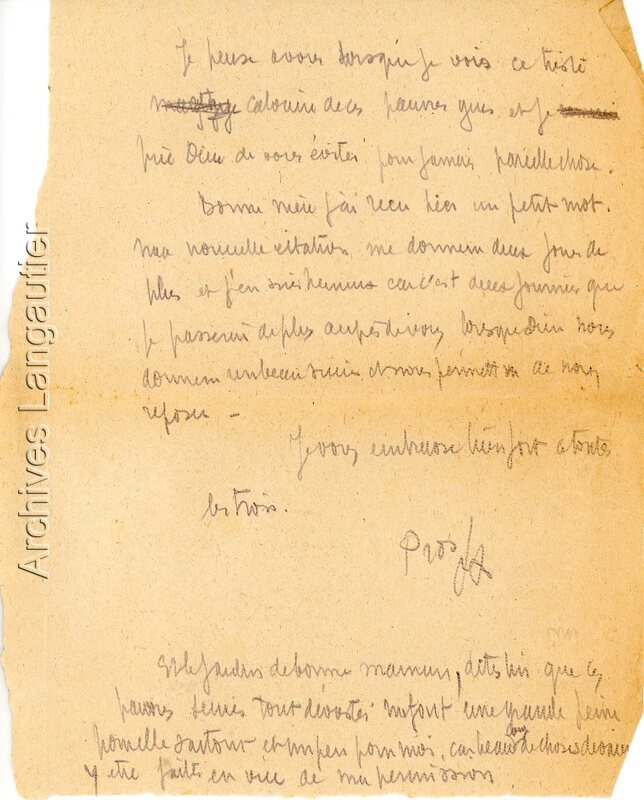 Je pense à vous lorsque je vois ce triste
calvaire de ces pauvres gens et je
prie Dieu de vous éviter pour jamais pareille chose.
Bonne mère j'ai reçu hier un petit mot.
ma nouvelle citation me donnera deux jours de
plus et j'en suis heureux car c'est deux journées que
je passerai de plus auprès de vous lorsque Dieu nous
donnera un beau et nous permettra de nous
reposer –
Je vous embrasse bien fort à toutes
les trois.
Et le jardin de bonne maman, dites lui que ces
pauvres semis tout dévastés me font une grande peine
pour elle surtout et un peu pour moi, car beaucoup de choses devaient
y être faites en vue de ma permission
Archives Langautier